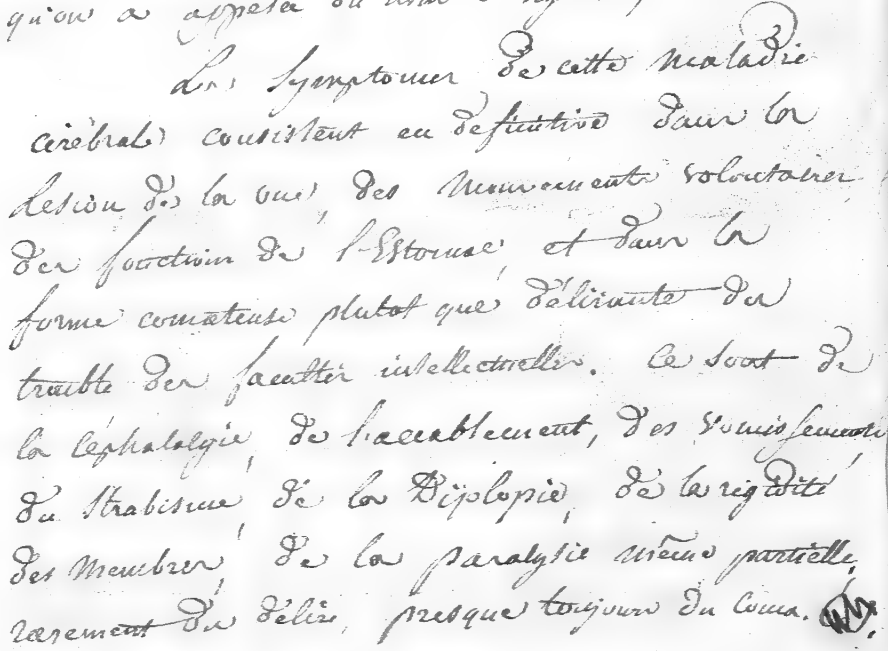 qu'on a appelé ou
Les Symptomes de cette maladie
cérébrale consistent en definitive dans la
Lesion de la vue, des mouvements volontaires
des fonctions de l'Estomac, et dans la
forme comateuse plutot que délirante du
trouble des facultés intellectuelles. Ce sont de
la Céphalalgie, de l'accablement, des vomissements,
du Strabisme, de la Diplopie, de la rigidité
des Membres, de la paralysie même partielle,
rarement du délire, presque toujours du Coma.